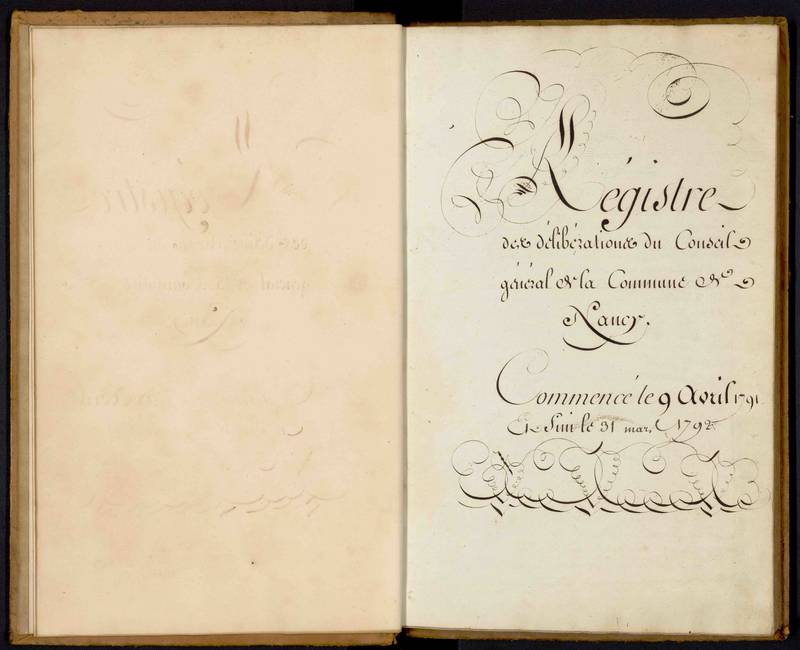 Régistre
des délibérations du Conseil
général de la Commune de
Nancy.
Commencé le 9 Avril 1791
Et fini le 31 mars 1792.